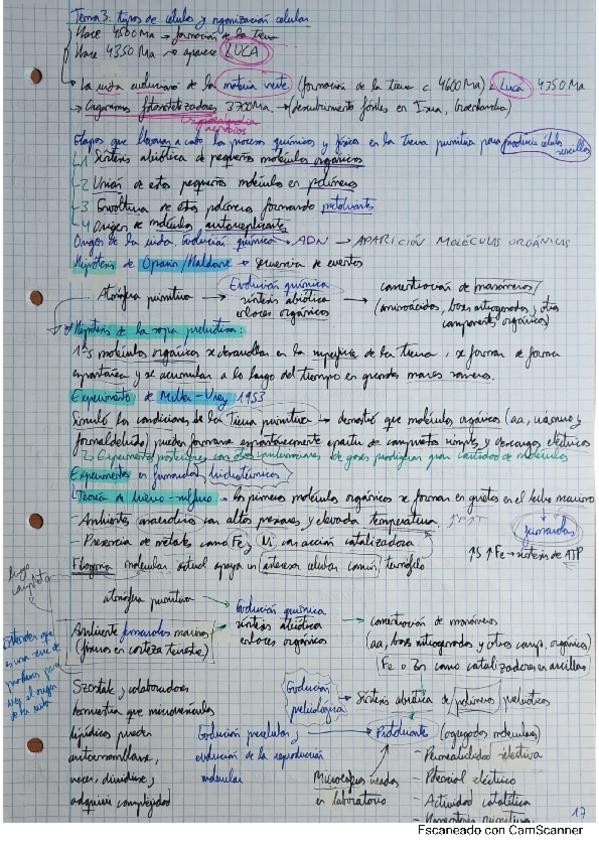 Tema 3: tipos de células y organización celular
Hace 4500 Ma → formación de la tierra
Hace 4350 Ma → aparece LUCA
→ La vida evolucionó de la materia inerte (formación de la tierra c. 4600 Ma) Luca 4350 Ma
→ Organismos fotosintetizadores 3700 Ma → (descubrimiento fósiles en Isua, Groenlandia)
Etapas que llevaron a cabo los procesos químicos y físicos en la Tierra primitiva para producir células sencillas
1 Síntesis abiótica de pequeñas moléculas orgánicas
2 Unión de estas pequeñas moléculas en polímeros
3 Envoltura de estos polímeros formando protobiontes
4 Origen de moléculas autorreplicantes
Origen de la vida. Evolución química → ADN → APARICIÓN MOLÉCULAS ORGÁNICAS
Hipótesis de Oparin/Haldane → secuencia de eventos
Atmósfera primitiva → Evolución química síntesis abiótica enlaces orgánicos → concentración de monómeros (aminoácidos, bases nitrogenadas y otros componentes orgánicos)
Hipótesis de la sopa prebiótica:
1ªs moléculas orgánicas se desarrollan en la superficie de la Tierra, se forman de forma
espontánea y se acumulan a lo largo del tiempo en grandes mares someros.
Experimento de Miller-Urey 1953
Simuló las condiciones de la Tierra primitiva → demostró que moléculas orgánicas (aa, cianuro y
formaldehído) pueden formarse espontáneamente a partir de compuestos simples y descargas eléctricas
Experimentos posteriores con otras combinaciones de gases produjeron gran cantidad de moléculas
Experimentos en fumarolas hidrotérmicas
Teoría de hierro-sulfuro → las primeras moléculas orgánicas se forman en grietas en el lecho marino
- Ambientes anaerobios con altas presiones y elevada temperatura
fumarolas
- Presencia de metales como Fe y Ni con acción catalizadora
↑S ↑Fe → síntesis de ATP
Filogenia molecular actual apoya un antecesor celular común termófilo
atmósfera primitiva
Evolución química
síntesis abiótica
enlaces orgánicos
Ambiente fumarolas marinas
(fisuras en corteza terrestre)
concentración de monómeros
(aa, bases nitrogenadas y otros comp. orgánicos)
Fe o Zn como catalizadores en arcillas
Entender que
es una serie de
Szostak y colaboradores
demuestra que microvesículas
lipídicas pueden
autoensamblarse,
crecer, dividirse, y
adquirir complejidad
Evolución prebiológica → Síntesis abiótica de polímeros prebióticos
Evolución precelular y
evolución de la reproducción
molecular
Protobionte (agregados moleculares)
Microesferas creadas
en laboratorio
- Permeabilidad selectiva
- Potencial eléctrico
- Actividad catalítica
17
Escaneado con CamScanner